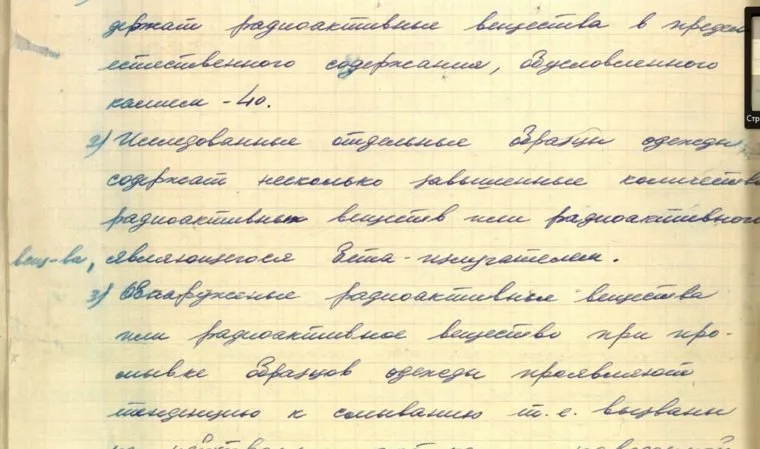 держат радиоактивные вещества в предел
естественного содержания, обусловленного
калием - 40.
2) Исследованные отдельные образцы одежды
содержат несколько завышенные количества
радиоактивных веществ или радиоактивного
вещ-ва, являющегося бета-излучателем.
3) Обнаруженные радиоактивные вещества
или радиоактивное вещество при про-
мывке образцов одежды проявляют
тенденцию к смыванию т.е. вызваны
Стр